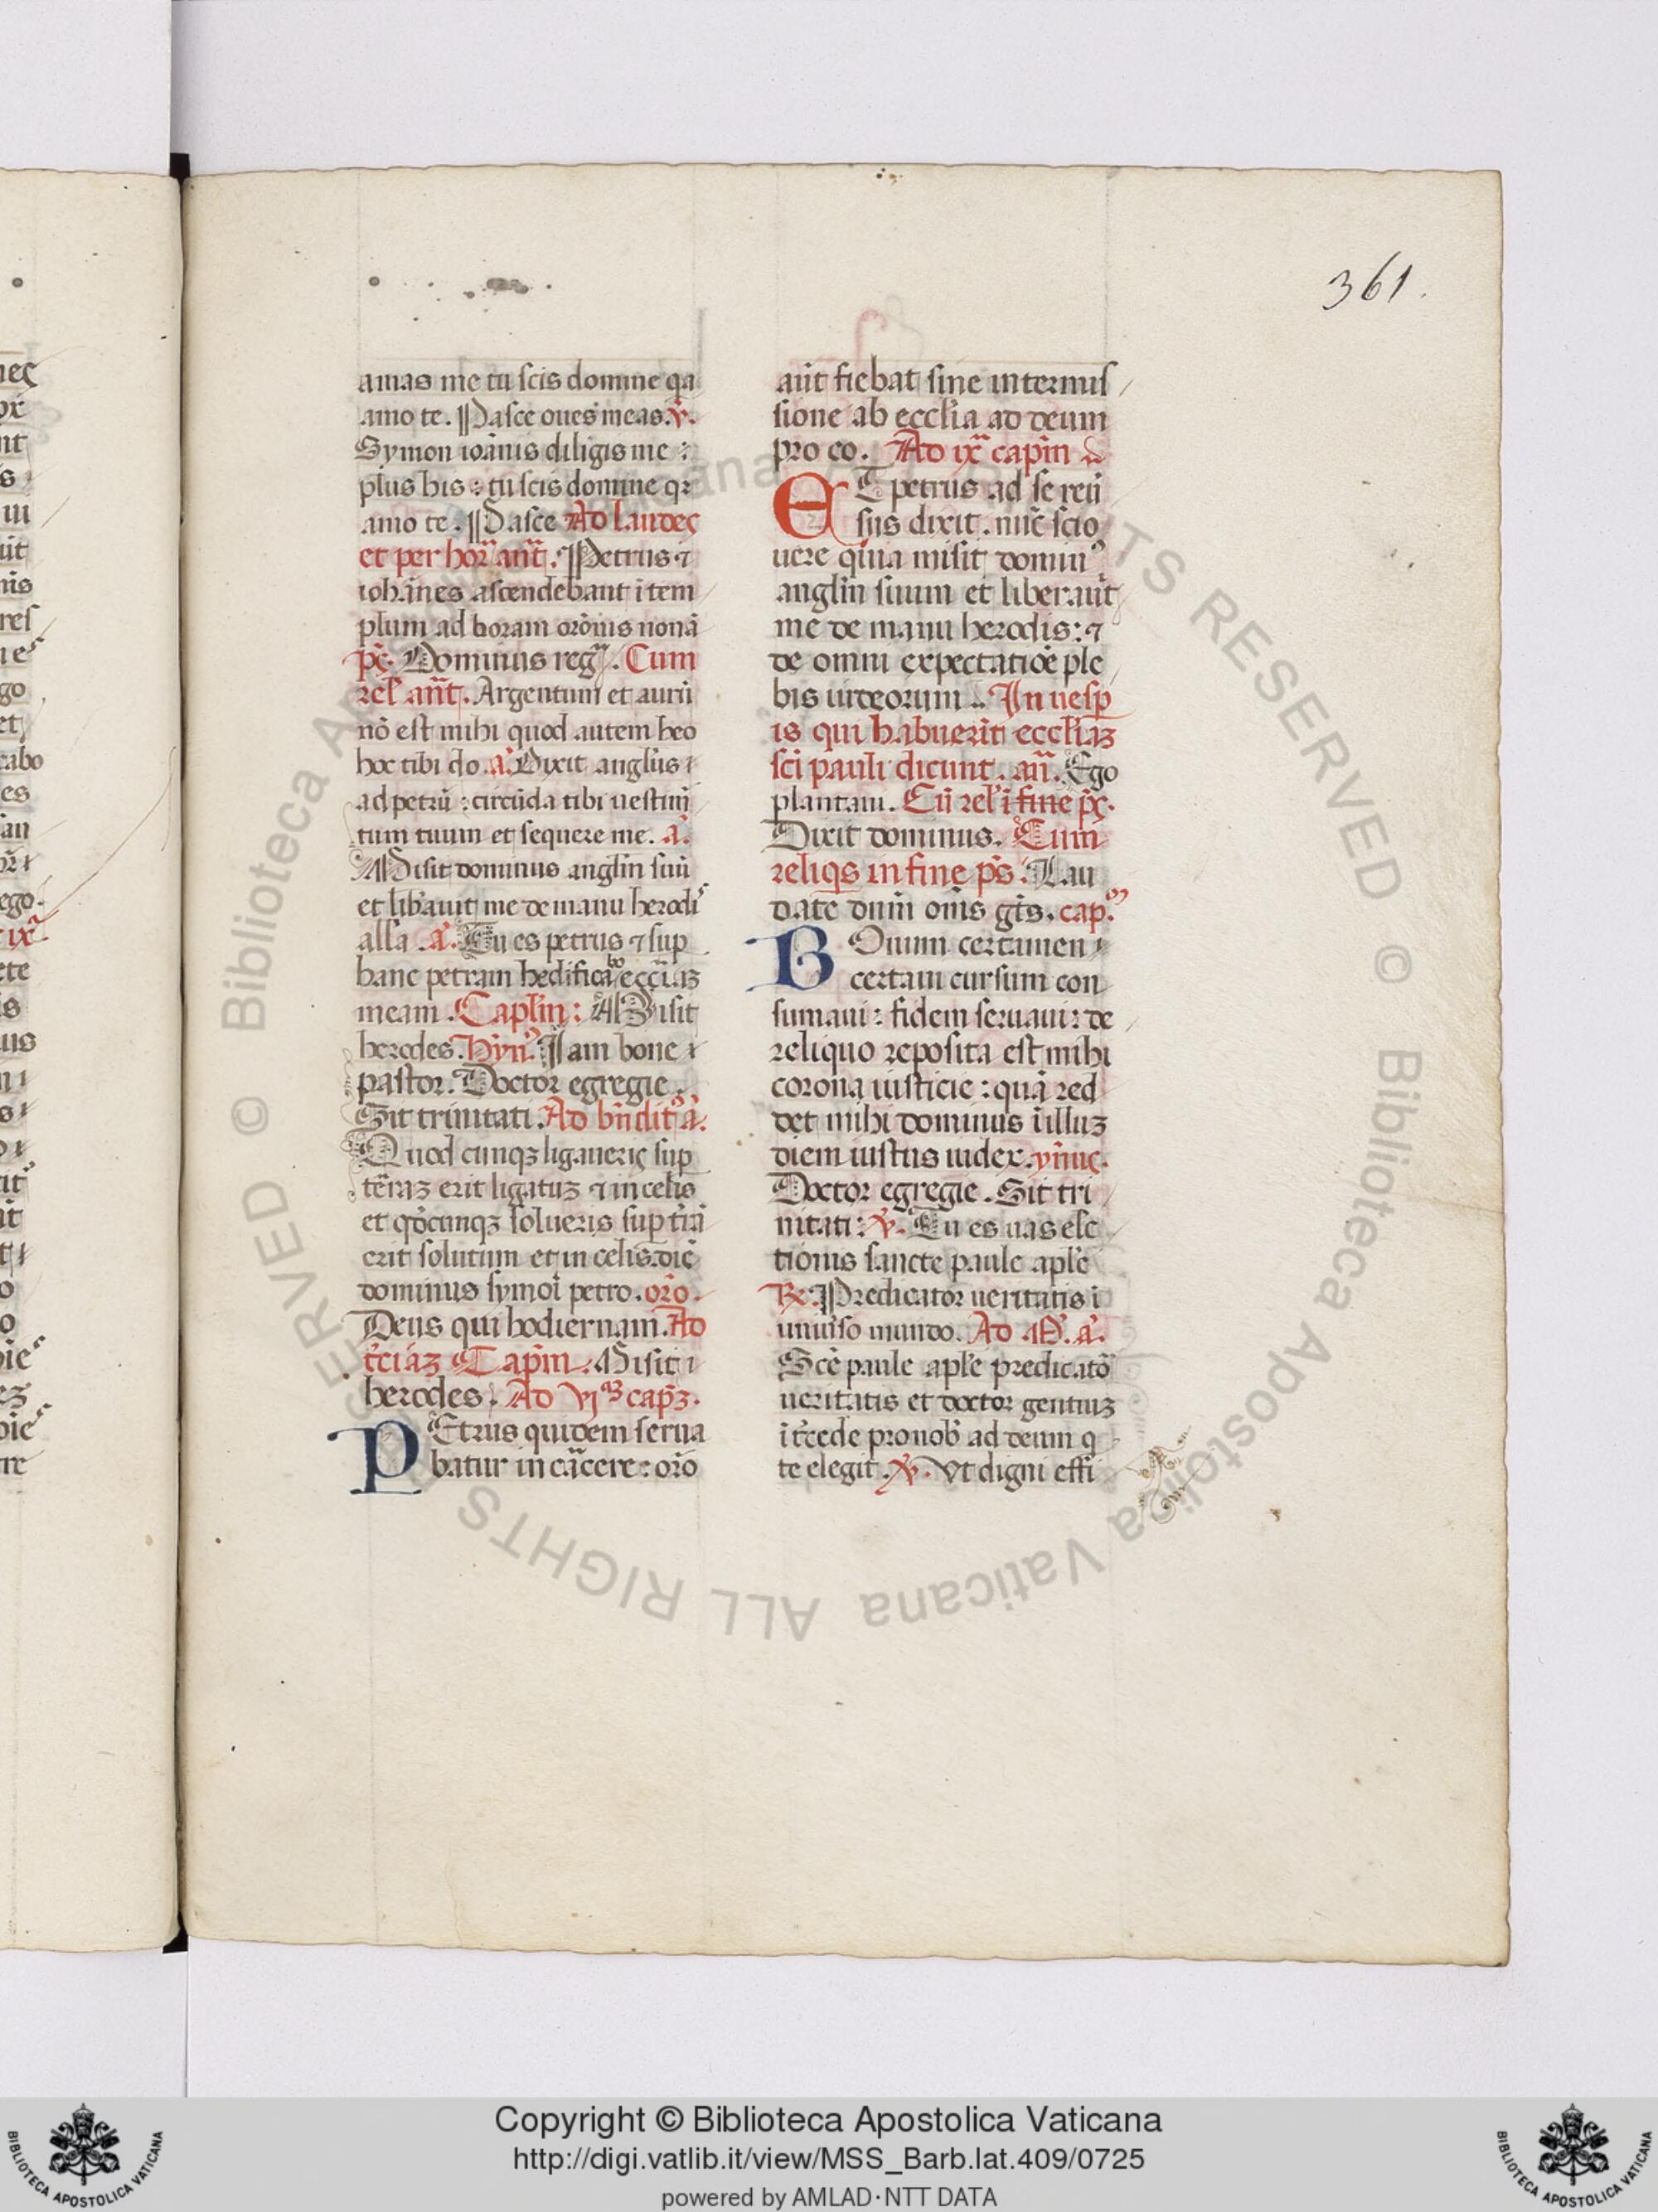 361.
amas me tu scis domine qa
amo te. Pasce oues meas. v̄.
Symon ioānis diligis me :
plus his : tu scis domine qꝛ
amo te. Pasce Ad laudes
et per hor̄ ant̄. Petrus ⁊
iohānes ascendebant ī tem
plum ad horam orōnis nonā
ps̄. Dominus reg. Cum
rel̄ ant̄. Argentum et aurū
nō est mihi quod autem heo
hoc tibi do. a. Dixit angl̄us
ad petrū : circūda tibi uestim̄
tum tuum et sequere me. a.
Misit dominus angl̄m suū
et lib̄auit me de manu herodis
all̄a. a. Tu es petrus ⁊ sup
hanc petram hedificabo eccl̄iaꝫ
meam. Capl̄m: Misit
herodes. Hyn̄. Iam bone
pastor. Doctor egregie.
Sit trinitati. Ad bn̄dit̄ a.
Quod cunqꝫ ligaueris sup
terraꝫ erit ligatuꝫ ⁊ in celis
et qd̄cunqꝫ solueris sup tr̄ā
erit solutum et in celis. dic̄
dominus symoī petro. orō.
Deus qui hodiernam. Ad
tr̄ciaꝫ Capm̄. Misit
herodes. Ad vj cap̄ꝫ.
PEtrus quidem serua
batur in carcere : orō
aūt fiebat sine intermis
sione ab eccl̄ia ad deum
pro eo. Ad ix capm̄
ET petrus ad se reū
sus dixit. nūc scio
uere quia misit dominꝰ
angl̄m suum et liberauit
me de manu herodis: ⁊
de omni expectatiōe ple
bis iudeorum. In uesp
is qui habuerīt eccl̄iaꝫ
sc̄i pauli dicunt. an̄. Ego
plantaui. Cū rel̄ ī fine ps̄.
Dixit dominus. Cum
reliqs in fine ps̄. Lau
date dn̄m om̄s gt̄s. cap.
BOnum certamen
certaui cursum con
sumaui : fidem seruaui : de
reliquo reposita est mihi
corona iusticie : quā red
det mihi dominus ī illuꝫ
diem iustus iudex. ym̄us.
Doctor egregie. Sit tri
nitati : v̄. Tu es uas ele
tionis sancte paule apl̄e
℟. Predicator ueritatis ī
uniu̓so mundo. Ad M. a.
Sc̄e paule apl̄e predicator
ueritatis et doctor gentiuꝫ
īt̄cede pro nob̄ ad deum q
te elegit. v̄. Vt digni effi
Copyright © Biblioteca Apostolica Vaticana
http://digi.vatlib.it/view/MSS_Barb.lat.409/0725
powered by AMLAD·NTT DATA
BIBLIOTECA APOSTOLICA VATICANA
BIBLIOTECA APOSTOLICA VATICANA
© Biblioteca Apostolica Vaticana ALL RIGHTS RESERVED © Biblioteca Apostolica Vaticana ALL RIGHTS RESERVED